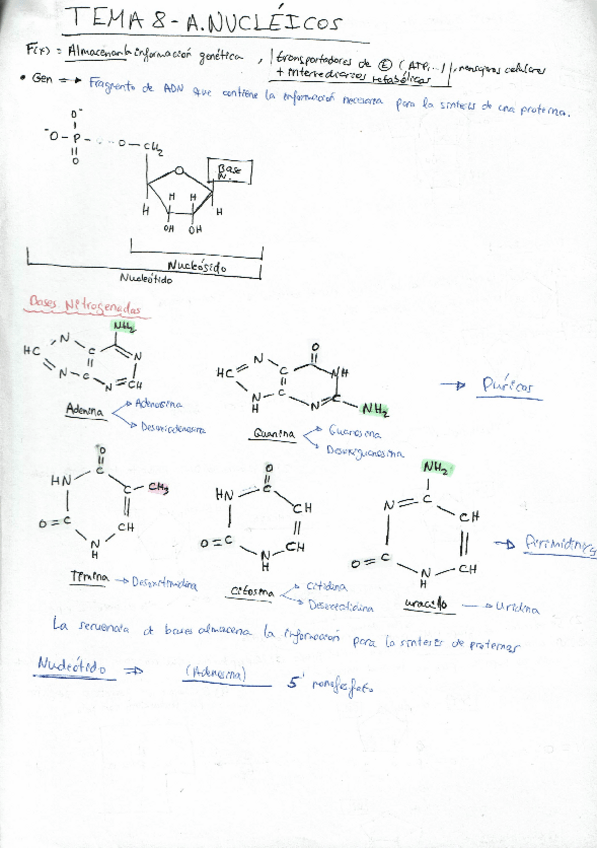 TEMA 8 - A. NUCLÉICOS
F(x) = Almacenan la información genética, transportadores de E (ATP...), mensajeros celulares
+ intermediarios metabólicos
• Gen => Fragmento de ADN que contiene la información necesaria para la síntesis de una proteína.
O⁻
⁻O - P - ... O - CH₂
O
O
Base N.
H H H H
OH OH
Nucleósido
Nucleótido
Bases Nitrogenadas
NH₂
N C N
HC N C N CH
Adenina
Adenosina
Desoxiadenosina
O
N NH
HC C
N C N C NH₂
H
Guanina
Guanosina
Desoxiguanosina
→ Púricas
O
HN C C CH₃
O=C CH
N
H
Timina → Desoxitimidina
O
HN C CH
O=C CH
N
H
Citosina
Citidina
Desoxicitidina
NH₂
N C CH
O=C CH
N
H
uracilo → Uridina
→ Pirimidínicas
La secuencia de bases almacena la información para la síntesis de proteínas
Nucleótido => (Adenosina) 5' monofosfato